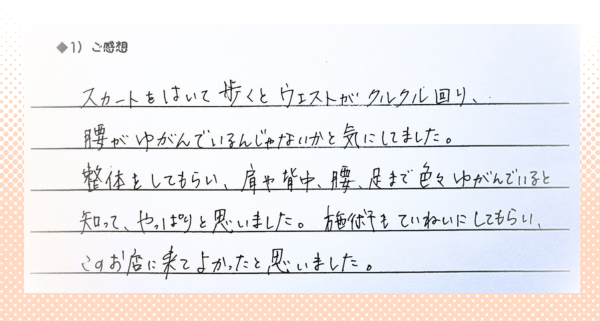 ◆1）ご感想
スカートをはいて歩くとウエストがクルクル回り、
腰がゆがんでいるんじゃないかと気にしてました。
整体をしてもらい、肩や背中、腰、足まで色々ゆがんでいると
知って、やっぱりと思いました。施術もていねいにしてもらい、
このお店に来てよかったと思いました。